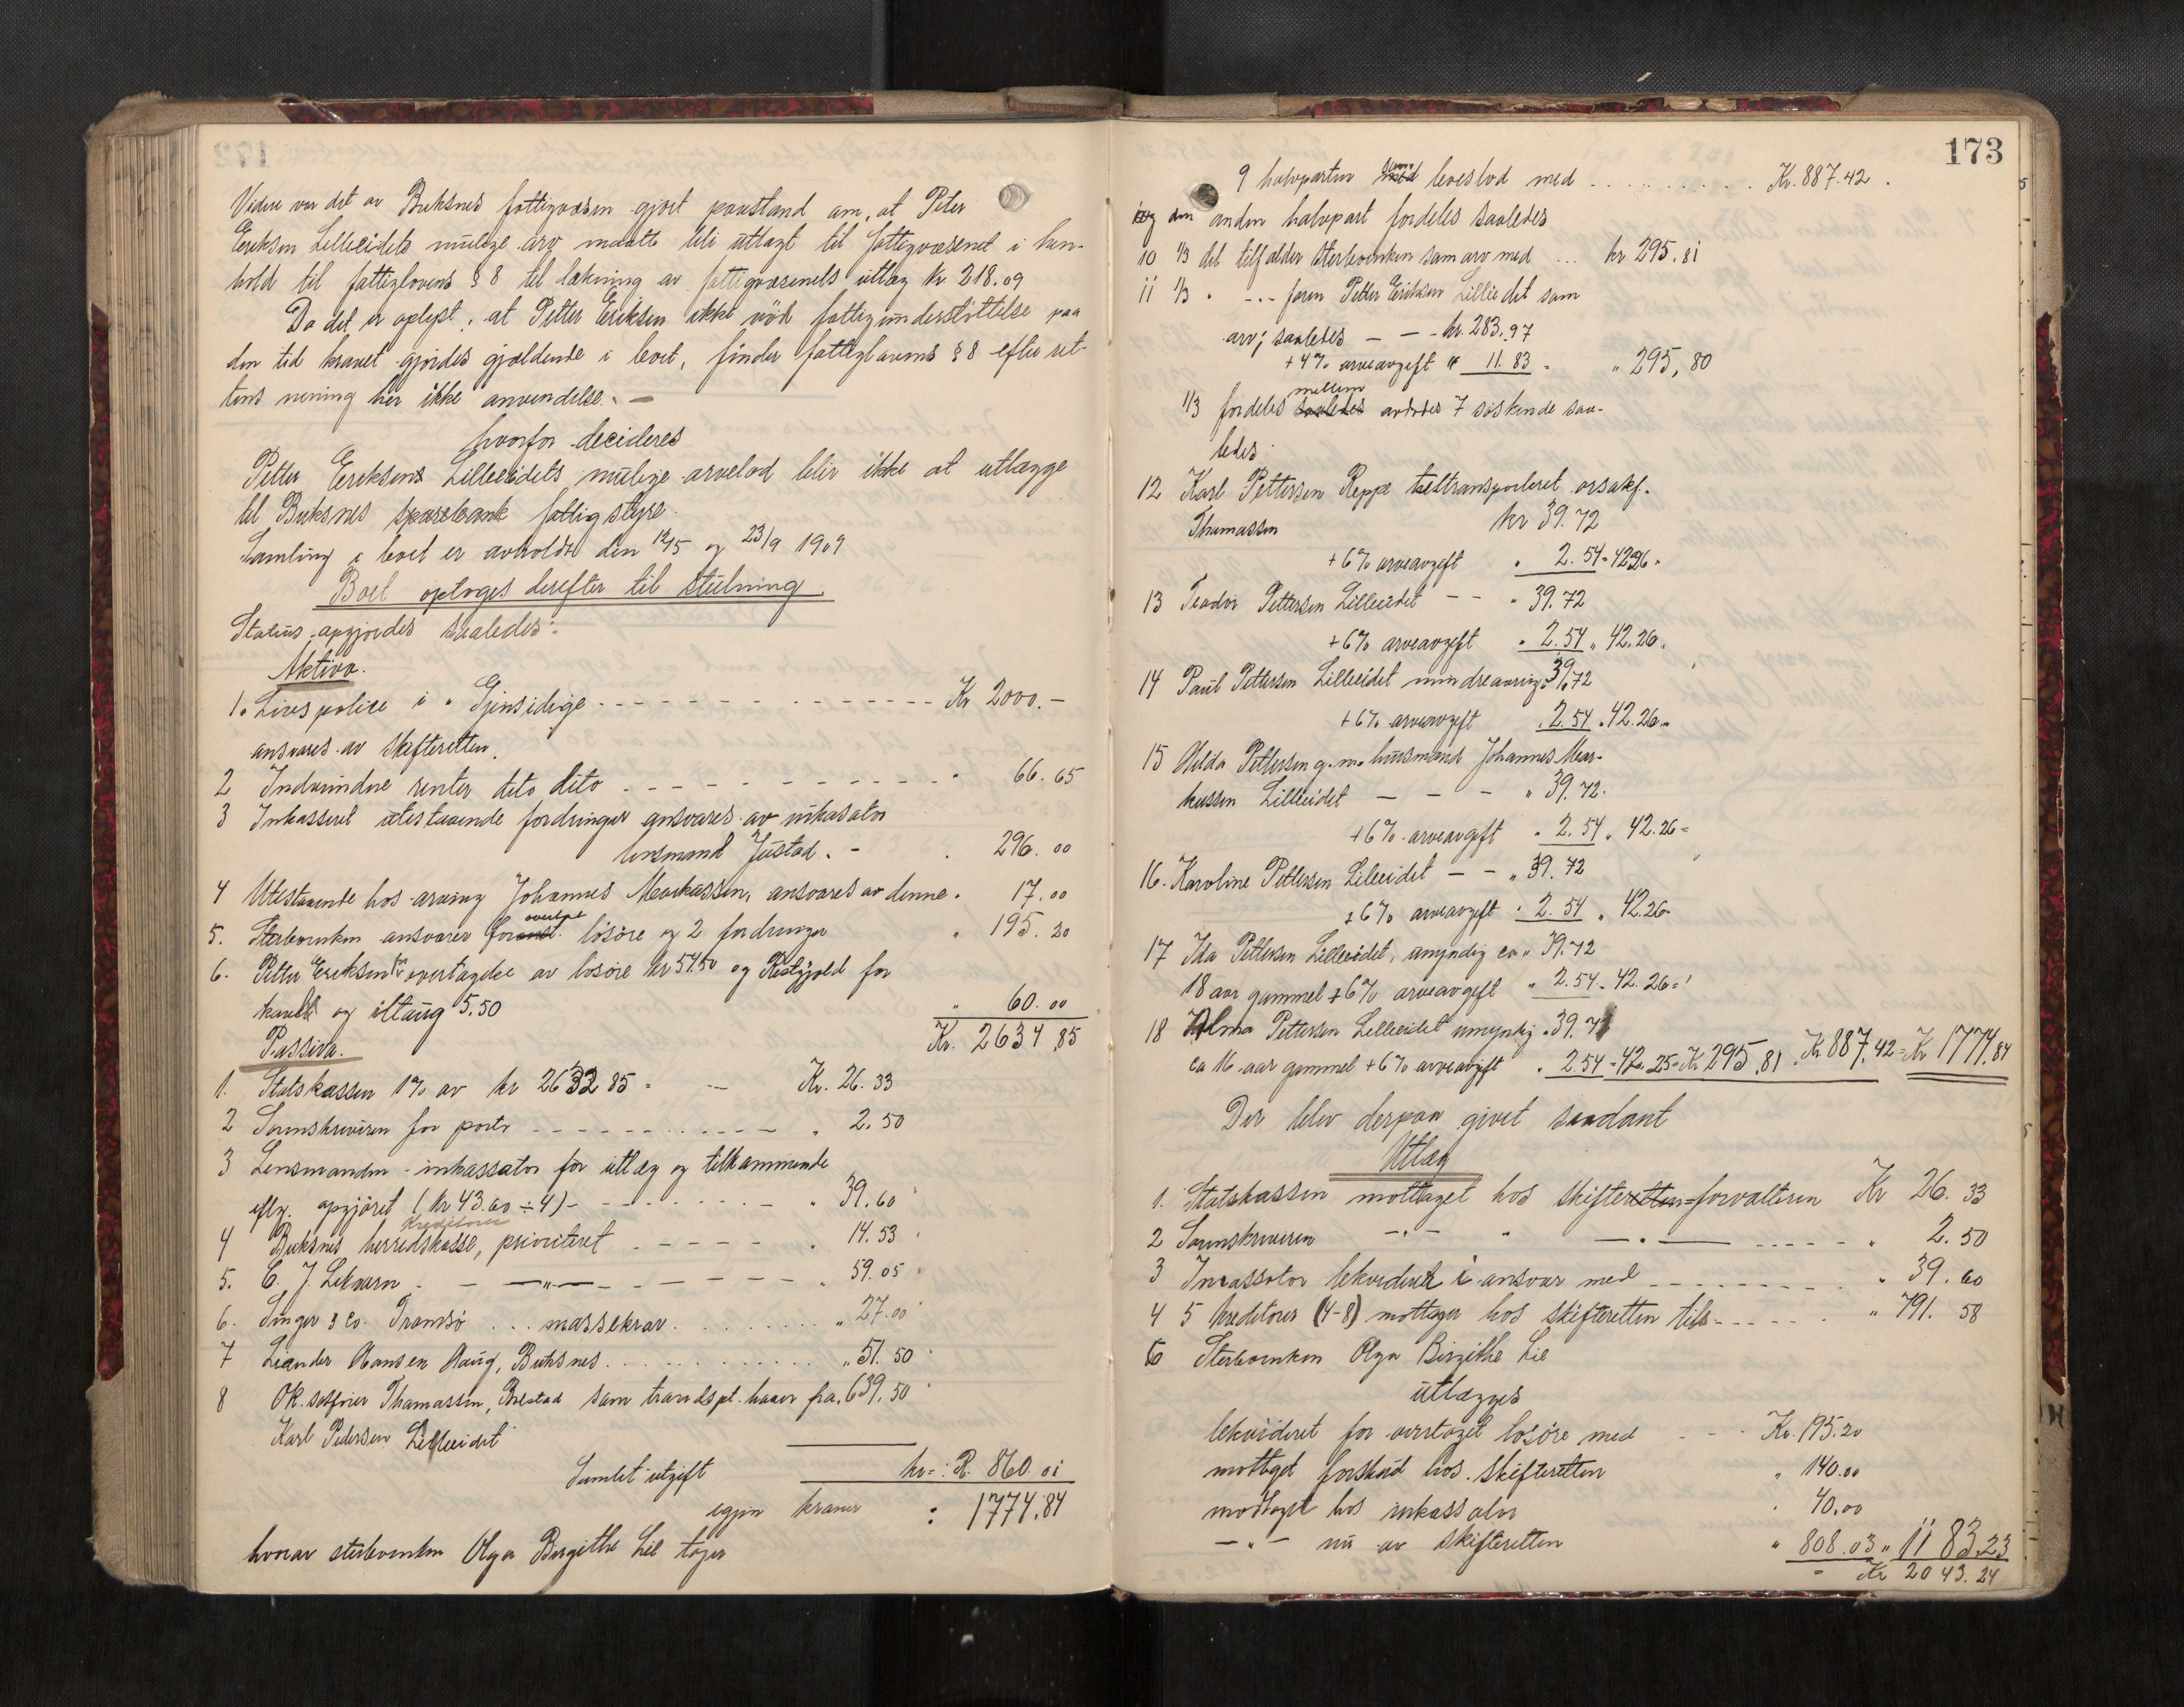 Videre var det av Buksnes fattigvæsen gjort paastand om, at Peter
Eriksen Lilleeidets mulige arv maatte bli utlagt til fattigvæsenet i hen-
hold til fattiglovens § 8 til dækning av fattigvæsenets utlæg kr 218.09
Da det er oplyst, at Petter Eriksen ikke nöd fattigunderstöttelse paa
den tid kravet gjordes gjældende i boet, finder fattiglovens § 8 efter ret-
tens mening her ikke anvendelse. —
hvorfor decideres
Petter Eriksens Lilleeidets mulige arvelod blir ikke at utlægge
til Buksnes sparebank fattigstyre.
Samling i boet er avholdt den 12/5 og 23/9 1909
Boet optoges derefter til slutning.
Status opgjordes saaledes:
Aktiva.
1. Livspolice i "Gjensidige - - - - Kr 2000.-
ansvares av skifteretten.
2 Indvundne renter dito dito - - - - " 66.65
3 Inkasseret utestaaende fordringer ansvares av inkasator
lensmand Justad. - " 296.00
4 Utestaaende hos arving Johannes Markussen, ansvares av denne " 17.00
5. Sterboenken ansvarer for overtat lösöre og 2 fordringer " 195.20
6. Petter Eriksen for overtagelse av lösöre kr 54.50 og Restgjæld for
og 5.50 " 60.00
Kr. 2634,85
Passiva.
1. Statskassen 1% av kr 2632 85 = — Kr. 26.33
2 Sorenskriveren for porto - - - - " 2.50
3 Lensmanden - inkassator for utlæg og tilkommende
eftr. opgjöret (kr 43.60 ÷ 4) - - - - " 39.60
kreditorer
4 Buksnes herredskasse, prioritert - - - - " 14.53
5. E. J. Leknarn - — " — - - - - " 59.05
6. Singer & Co. Tromsö . . . massekrav . . . . " 27.00
7 Leander Hansen Haug, Buksnes . . . . " 51.50
8 OK. sakförer Thomassen, som transpt. haver fra " 639.50
Karl Pedersen Lilleeidet
Samlet utgift kr =: R. 860.01
igjen kroner : 1774.84
hvorav sterboenken Olga Birgithe Lie tager
173
9 halvparten som boeslod med . . . . Kr. 887.42.
og den anden halvpart fordeles saaledes
10 1/3 del tilfalder sterboenken som arv med ... kr 295.81
11 1/3 " -.- faren Petter Eriksen Lilleeidet som
arv; saaledes — — - kr. 283.97
+4% arveavgift " 11.83 - " 295,80
1/3 fordeles mellem avdödes 7 söskende saa-
ledes
12 Karl Pettersen Reppe tiltransporteret orsakf.
Thomassen kr 39.72
+6% arveavgift " 2.54 = 42.26 "
13 Teodor Pettersen Lilleeidet — — " 39.72
+6% arveavgift " 2.54 " 42.26 "
14 Paul Pettersen Lilleeidet mindreaarig " 39.72
+6% arveavgift " 2.54 " 42.26 "
15 Hilda Pettersen g. m. husmand Johannes Mar-
kussen Lilleeidet — — — " 39.72.
+6% arveavgift " 2.54 " 42.26 =
16. Karoline Pettersen Lilleeidet — — " 39.72
+6% arveavgift " 2.54 " 42.26
17 Ida Pettersen Lilleeidet, umyndig ca " 39.72
18 aar gammel +6% arveavgift " 2.54 = 42.26 =
18 Alma Pettersen Lilleeidet umyndig " 39.71
ca 16 aar gammel +6% arveavgift " 2.54 = 42.25 = Kr 295.81 Kr 887.42 = Kr 1774.84
Der blev derpaa givet saadant
Utlæg
1. Statskassen mottaget hos skifteretten=forvalteren Kr 26.33
2 Sorenskriveren —.— " —.— - - - - " 2.50
3 Incassator lekvideret i ansvar med - - - - " 39.60
4 5 kreditorer (4-8) mottager hos skifteretten tils - - - - " 791.58
6 Sterboenken Olga Birgithe Lie
utlægges
lekvideret for overtaget lösöre med - - - Kr. 195.20
mottaget forskud hos skifteretten " 140.00
modtaget hos inkassator " 40.00
— " — nu av skifteretten " 808.03 " 1183,23
= Kr 2043.24